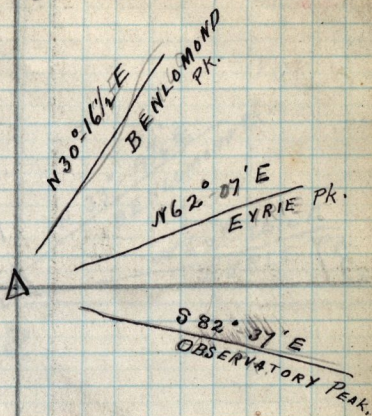 N 30°-16½ E
BENLOMOND
PK.
N 62° 07' E
EYRIE PK.
S 82° 37' E
OBSERVATORY PEAK.